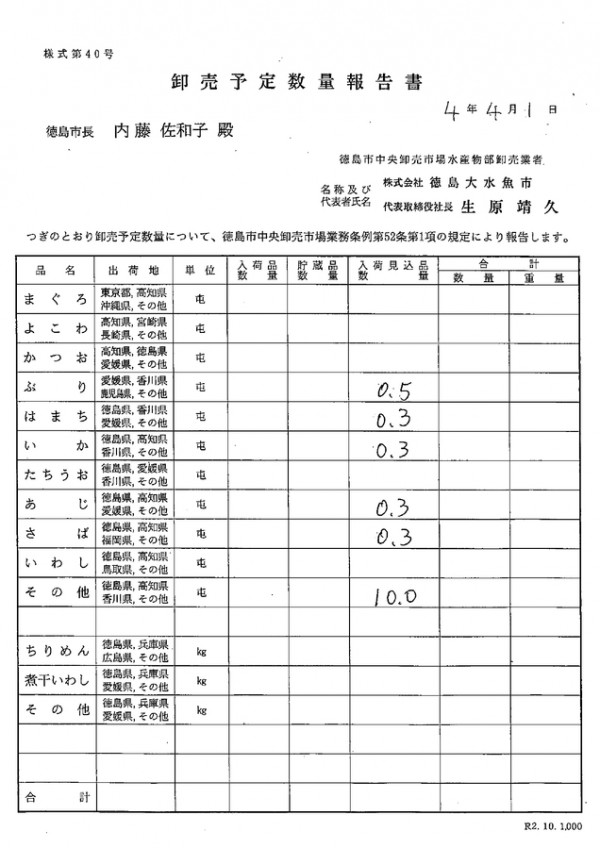 様式第40号
卸売予定数量報告書
4年4月1日
徳島市長 内藤 佐和子 殿
徳島市中央卸売市場水産物部卸売業者
名称及び 株式会社 徳島大水魚市
代表者氏名 代表取締役社長 生原靖久
つぎのとおり卸売予定数量について、徳島市中央卸売市場業務条例第52条第1項の規定により報告します。
品名 出荷地 単位 入荷品数量 貯蔵品数量 入荷見込品数量 合計 数量 重量
まぐろ 東京都, 高知県 沖縄県, その他 屯
よこわ 高知県, 宮崎県 長崎県, その他 屯
かつお 高知県, 徳島県 愛媛県, その他 屯
ぶり 愛媛県, 香川県 鹿児島県, その他 屯 0.5
はまち 徳島県, 香川県 愛媛県, その他 屯 0.3
いか 徳島県, 高知県 香川県, その他 屯 0.3
たちうお 徳島県, 愛媛県 香川県, その他 屯
あじ 徳島県, 高知県 愛媛県, その他 屯 0.3
さば 徳島県, 高知県 福岡県, その他 屯 0.3
いわし 徳島県, 高知県 鳥取県, その他 屯
その他 徳島県, 高知県 香川県, その他 屯 10.0
ちりめん 徳島県, 兵庫県 広島県, その他 kg
煮干いわし 徳島県, 兵庫県 愛媛県, その他 kg
その他 徳島県, 兵庫県 愛媛県, その他 kg
合計
R2. 10. 1,000